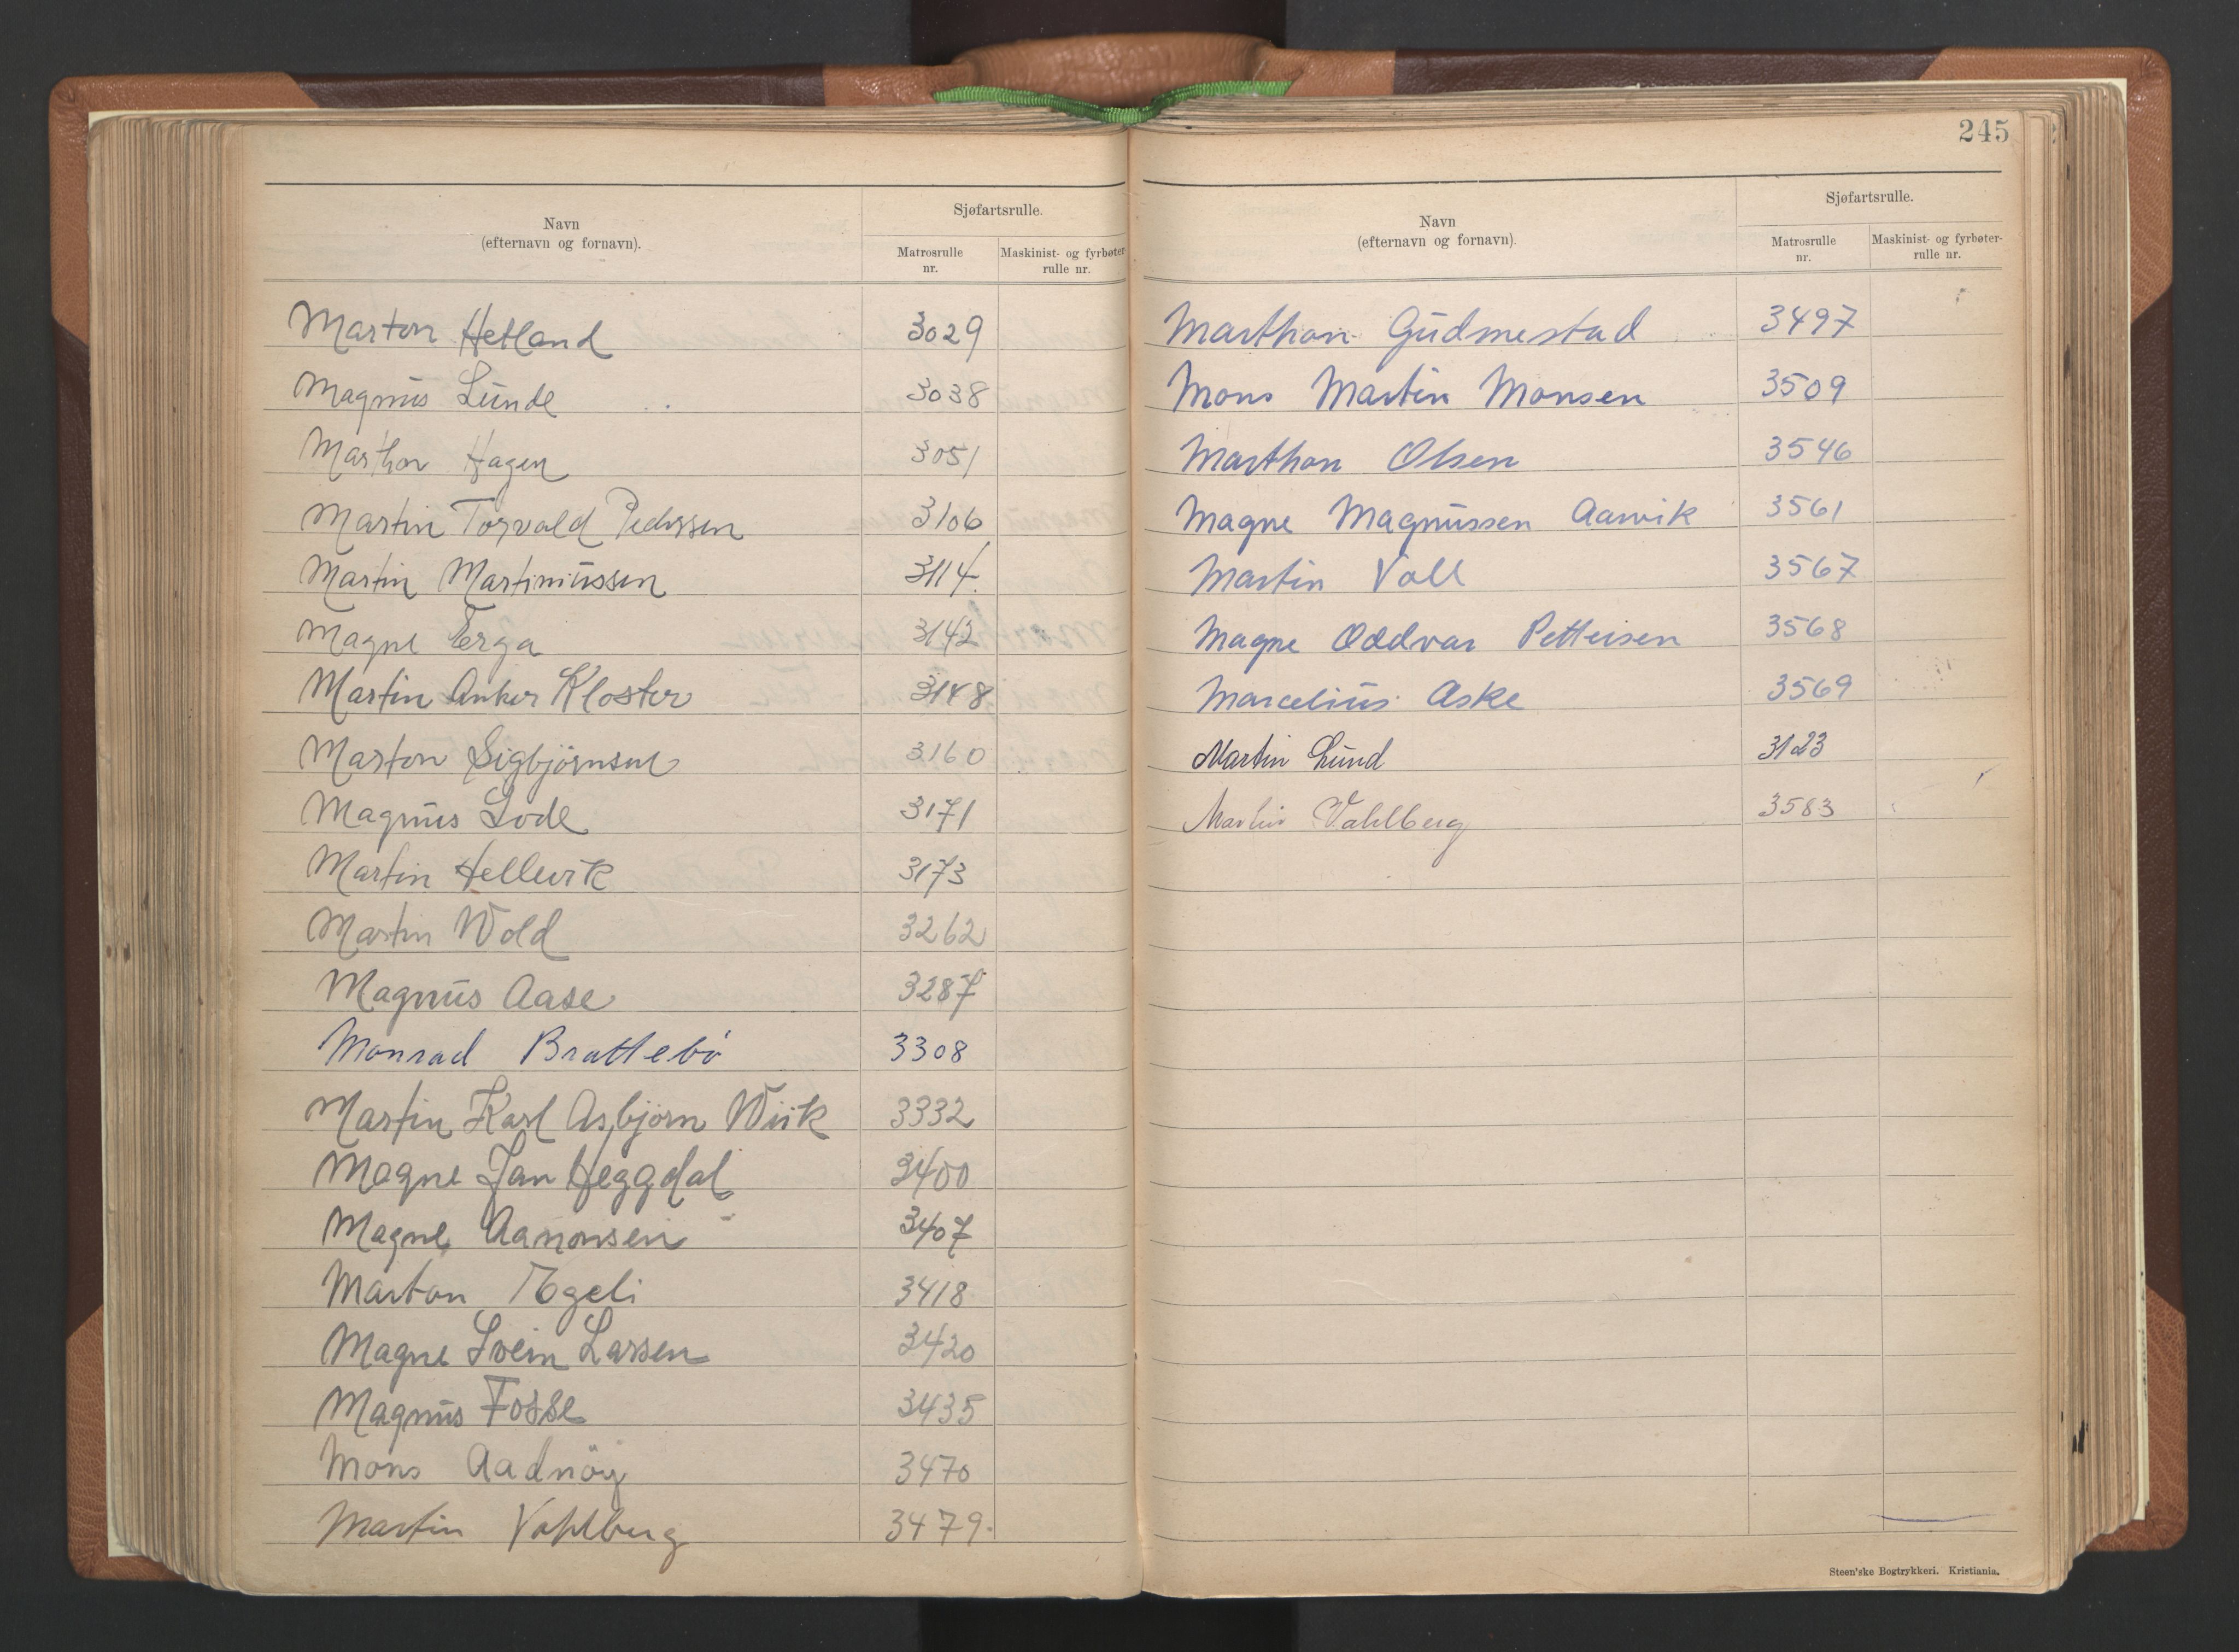 Navn
(efternavn og fornavn).
Sjøfartsrulle.
Matrosrulle
nr.
Maskinist- og fyrbøter-
rulle nr.
Marton Hetland 3029
Magnus Lunde 3038
Marthon Hagen 3051
Martin Torvald Pedersen 3106
Martin Martinussen 3114.
Magne Erga 3142
Martin Anker Kloster 3148
Marton Sigbjørnsen 3160
Magnus Lode 3171
Martin Hellevik 3173
Martin Wold 3262
Magnus Aase 3287
Monrad Brattebö 3308
Martin Karl Asbjørn Wiik 3332
Magne Jan Heggdal 3400
Magne Aanonsen 3407
Marton Egeli 3418
Magne Svein Larsen 3420
Magnus Fosse 3435
Mons Aadnöy 3470
Martin Vahlberg 3479.
245
Navn
(efternavn og fornavn).
Sjøfartsrulle.
Matrosrulle
nr.
Maskinist- og fyrbøter-
rulle nr.
Marthon Gudmestad 3497
Mons Martin Monsen 3509
Marthon Olsen 3546
Magne Magnussen Aarvik 3561
Martin Voll 3567
Magne Oddvar Pettersen 3568
Marcelius Aske 3569
Martin Lund 3123
Martin Vahlberg 3583
Steen'ske Bogtrykkeri. Kristiania.